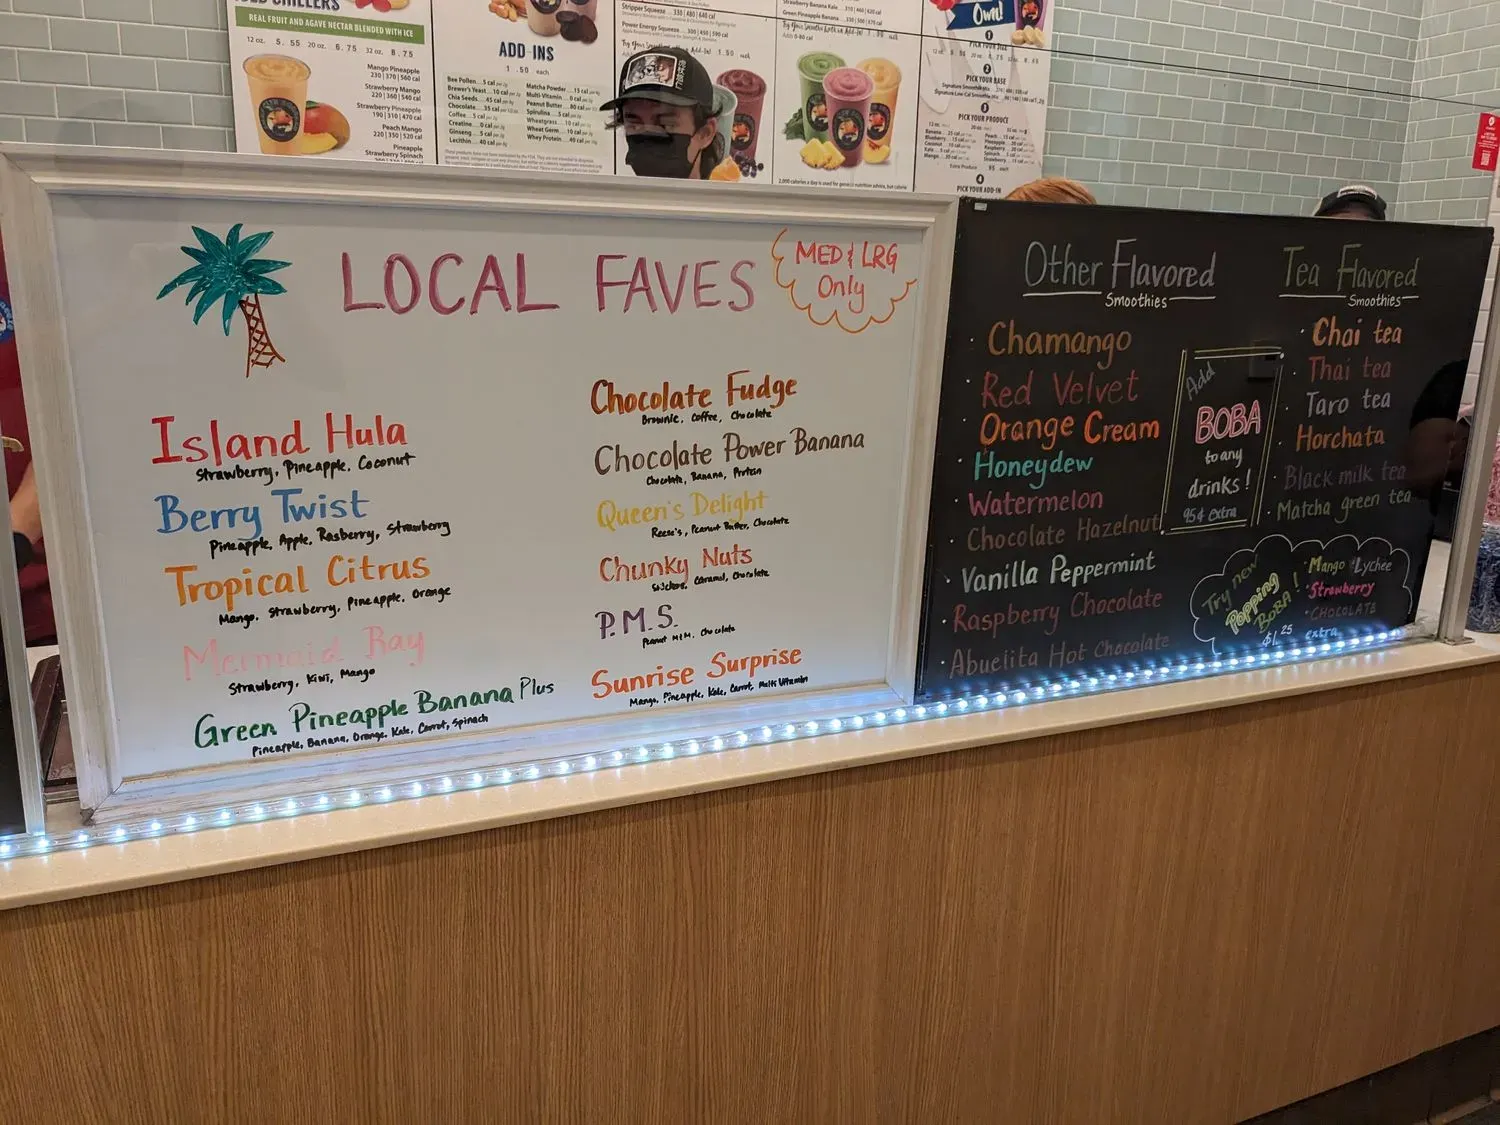 REAL FRUIT AND AGAVE NECTAR BLENDED WITH ICE
12 oz. 5.55 20 oz. 6.75 32 oz. 8.75
Mango Pineapple
230|370|560 cal
Strawberry Mango
220|360|540 cal
Strawberry Pineapple
190|310|470 cal
Peach Mango
220|350|520 cal
Pineapple
Strawberry Spinach
ADD-INS
1.50 each
Bee Pollen...5 cal
Brewer's Yeast...10 cal
Chia Seeds...45 cal
Chocolate...35 cal
Coffee...5 cal
Creatine...0 cal
Ginseng...5 cal
Lecithin...40 cal
Matcha Powder...15 cal
Multi-Vitamin...0 cal
Peanut Butter...80 cal
Spirulina...5 cal
Wheatgrass...10 cal
Wheat Germ...10 cal
Whey Protein...40 cal
Stripper Squeeze...330|480|640 cal
Power Energy Squeeze...300|450|590 cal
Strawberry Banana Kale
Green Pineapple Banana
Own!
1
PICK YOUR SIZE
2
PICK YOUR BASE
3
PICK YOUR PRODUCE
4
PICK YOUR ADD-IN
LOCAL FAVES
MED & LRG
Only
Island Hula
Strawberry, Pineapple, Coconut
Berry Twist
Pineapple, Apple, Rasberry, Strawberry
Tropical Citrus
Mango, Strawberry, Pineapple, Orange
Mermaid Bay
Strawberry, Kiwi, Mango
Green Pineapple Banana Plus
Pineapple, Banana, Orange, Kale, Carrot, Spinach
Chocolate Fudge
Brownie, Coffee, Chocolate
Chocolate Power Banana
Chocolate, Banana, Protein
Queen's Delight
Reese's, Peanut Butter, Chocolate
Chunky Nuts
Snickers, Caramel, Chocolate
P.M.S.
Peanut M&M, Chocolate
Sunrise Surprise
Mango, Pineapple, Kale, Carrot, Multi Vitamin
Other Flavored
Smoothies
· Chamango
· Red Velvet
· Orange Cream
· Honeydew
· Watermelon
· Chocolate Hazelnut
· Vanilla Peppermint
· Raspberry Chocolate
· Abuelita Hot Chocolate
Add
BOBA
to any
drinks!
95¢ extra
Tea Flavored
Smoothies
· Chai tea
· Thai tea
· Taro tea
· Horchata
· Black milk tea
· Matcha green tea
Try new
Popping
BOBA!
· Mango · Lychee
· Strawberry
· CHOCOLATE
$1.25 extra